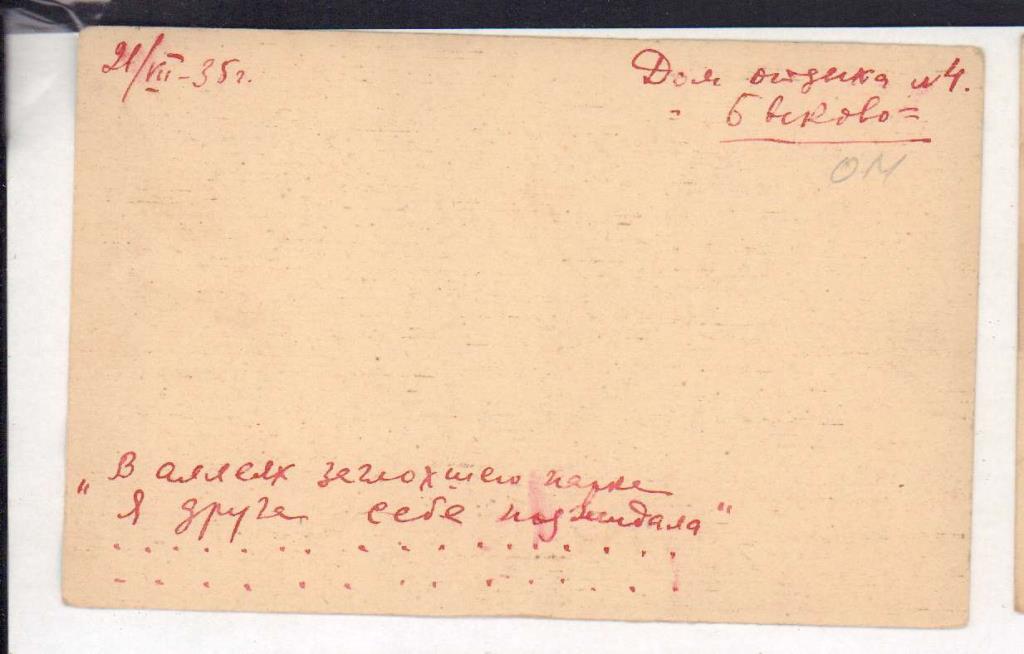 21/VII-35г.
Дом отдыха №4.
= Быково =
ОМ
„В аллеях заглохшего парка
Я друга себе поджидала"